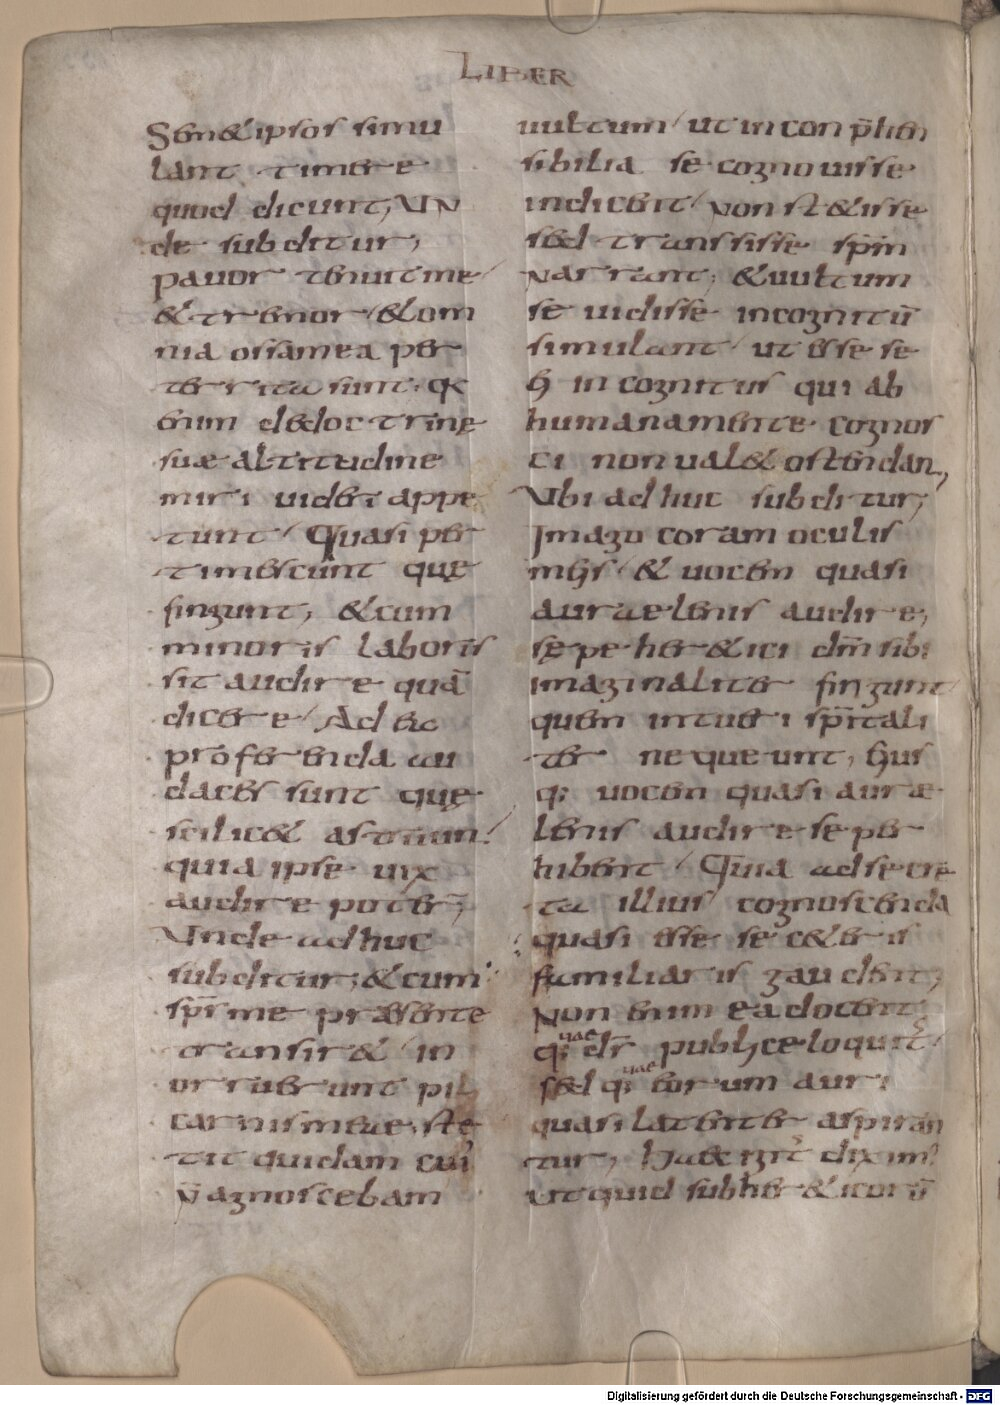 LIBER
Sem&ipsos simu
lant timere
quod dicunt; UN
de subditur;
pauor tenuit me
& tremor &om
nia ossamea per
territa sunt; q̄
enim dedoctrinę
suæ altitudine
miri uideri appe
tunt Quasi per
timescunt quę
fingunt; &cum
minoris laboris
sit audire quā
dicere Ad ea
proferenda au
daces sunt quę
scilic& astruun!
quia ipse uix
audire poter̄;
Unde adhuc
subditur; &cum
spr̄ me præsente
transir& in
orruerunt pili
carnismeae; ste
tit quidam cuiꝰ
n̄ agnoscebam
uultum ut incon p̄hen
sibilia se cognouisse
indicent Non st&isse
sed transsisse spm̄
Narrant; &uultum
se uidisse incognitū
simulant ut esse se
ei incognitus qui ab
humanamente cognos
ci non ual& ostendan,
Ubi adhuc subditur;
Imago coram oculis
meis & uocem quasi
auraelenis audire;
sępe her&ici dm̄ sibi
imaginaliter fingunt
quem intueri spiritali
ter nequeunt; eius
q; uocem quasi auræ
lenis audire se per
hibent Quia adsecre
ta illius cognoscenda
quasi esse se c&eris
familiaris gaudent;
Non enim ea docent
quae dr̄ publice loquit̄
sed quae eorum auri
quasi latenter aspiran
tur; haec igit̄ diximꝰ
ut quid subher&icorū
Digitalisierung gefördert durch die Deutsche Forschungsgemeinschaft - DFG